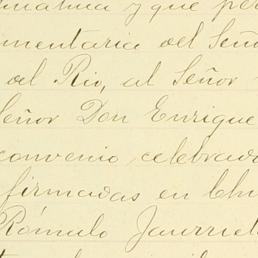 y que per
mentaria del Seño
del Rio, al Señor
Señor Don Enrique
convenio celebrad
firmadas en Chi
Rómulo Jaurriet